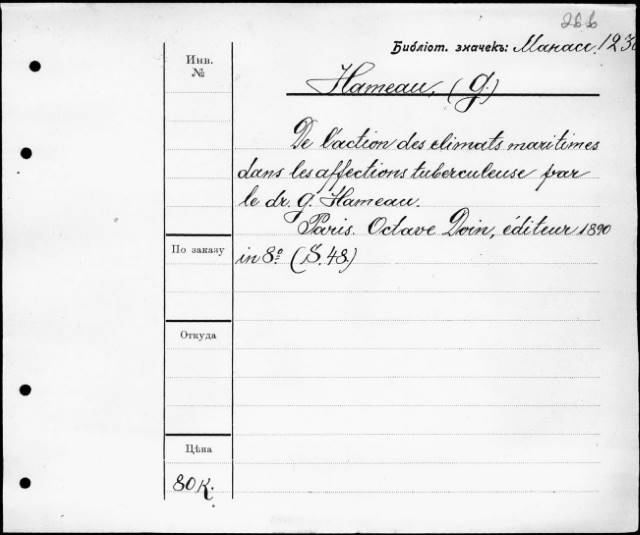 Библіот. значекъ: Манасс. 123
Инв. №
Hameau, (G.)
De l'action des climats maritimes
dans les affections tuberculeuse par
le dr. G. Hameau.
Paris. Octave Doin, éditeur 1890
По заказу
in 8.º (S. 48.)
Откуда
Цѣна
80 к.